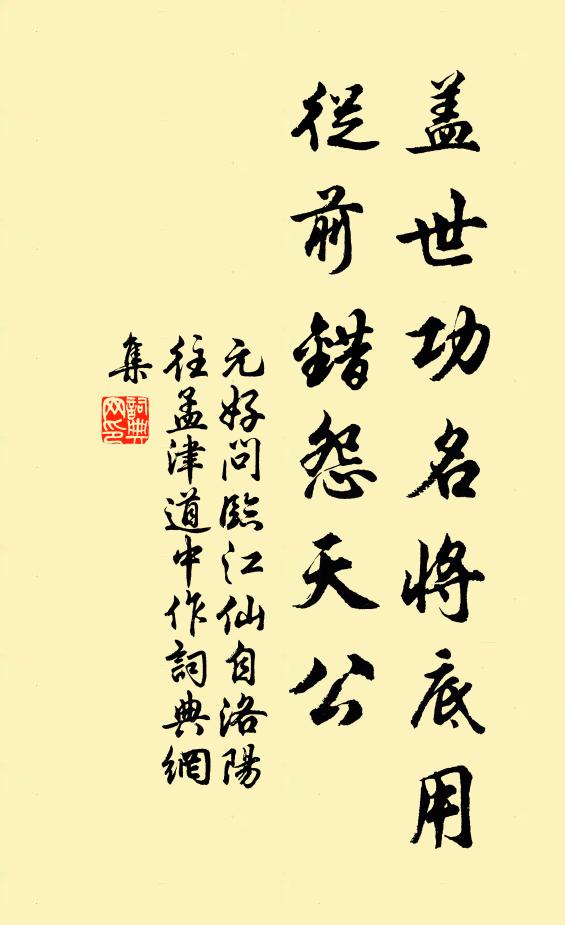 盖世功名將底用
從前錯怨天公
元好問臨江仙自洛陽
往孟津道中作詞典網
集
詞典
网印